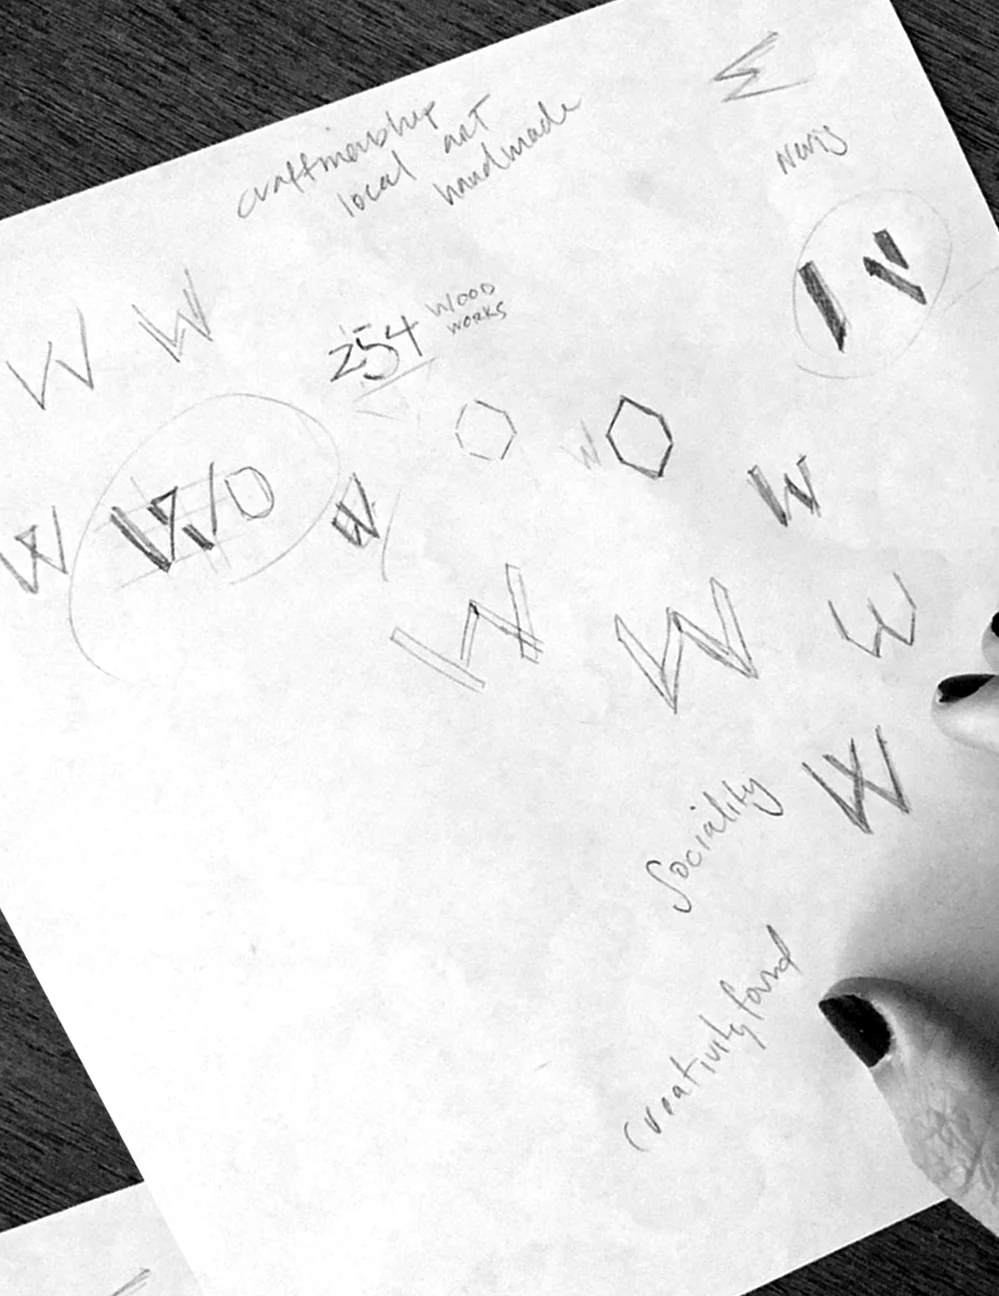 craftmanship
local art
handmade
W W
254 WOOD
WORKS
W W/O W W W
W W W
W
Sociality
Creativity found